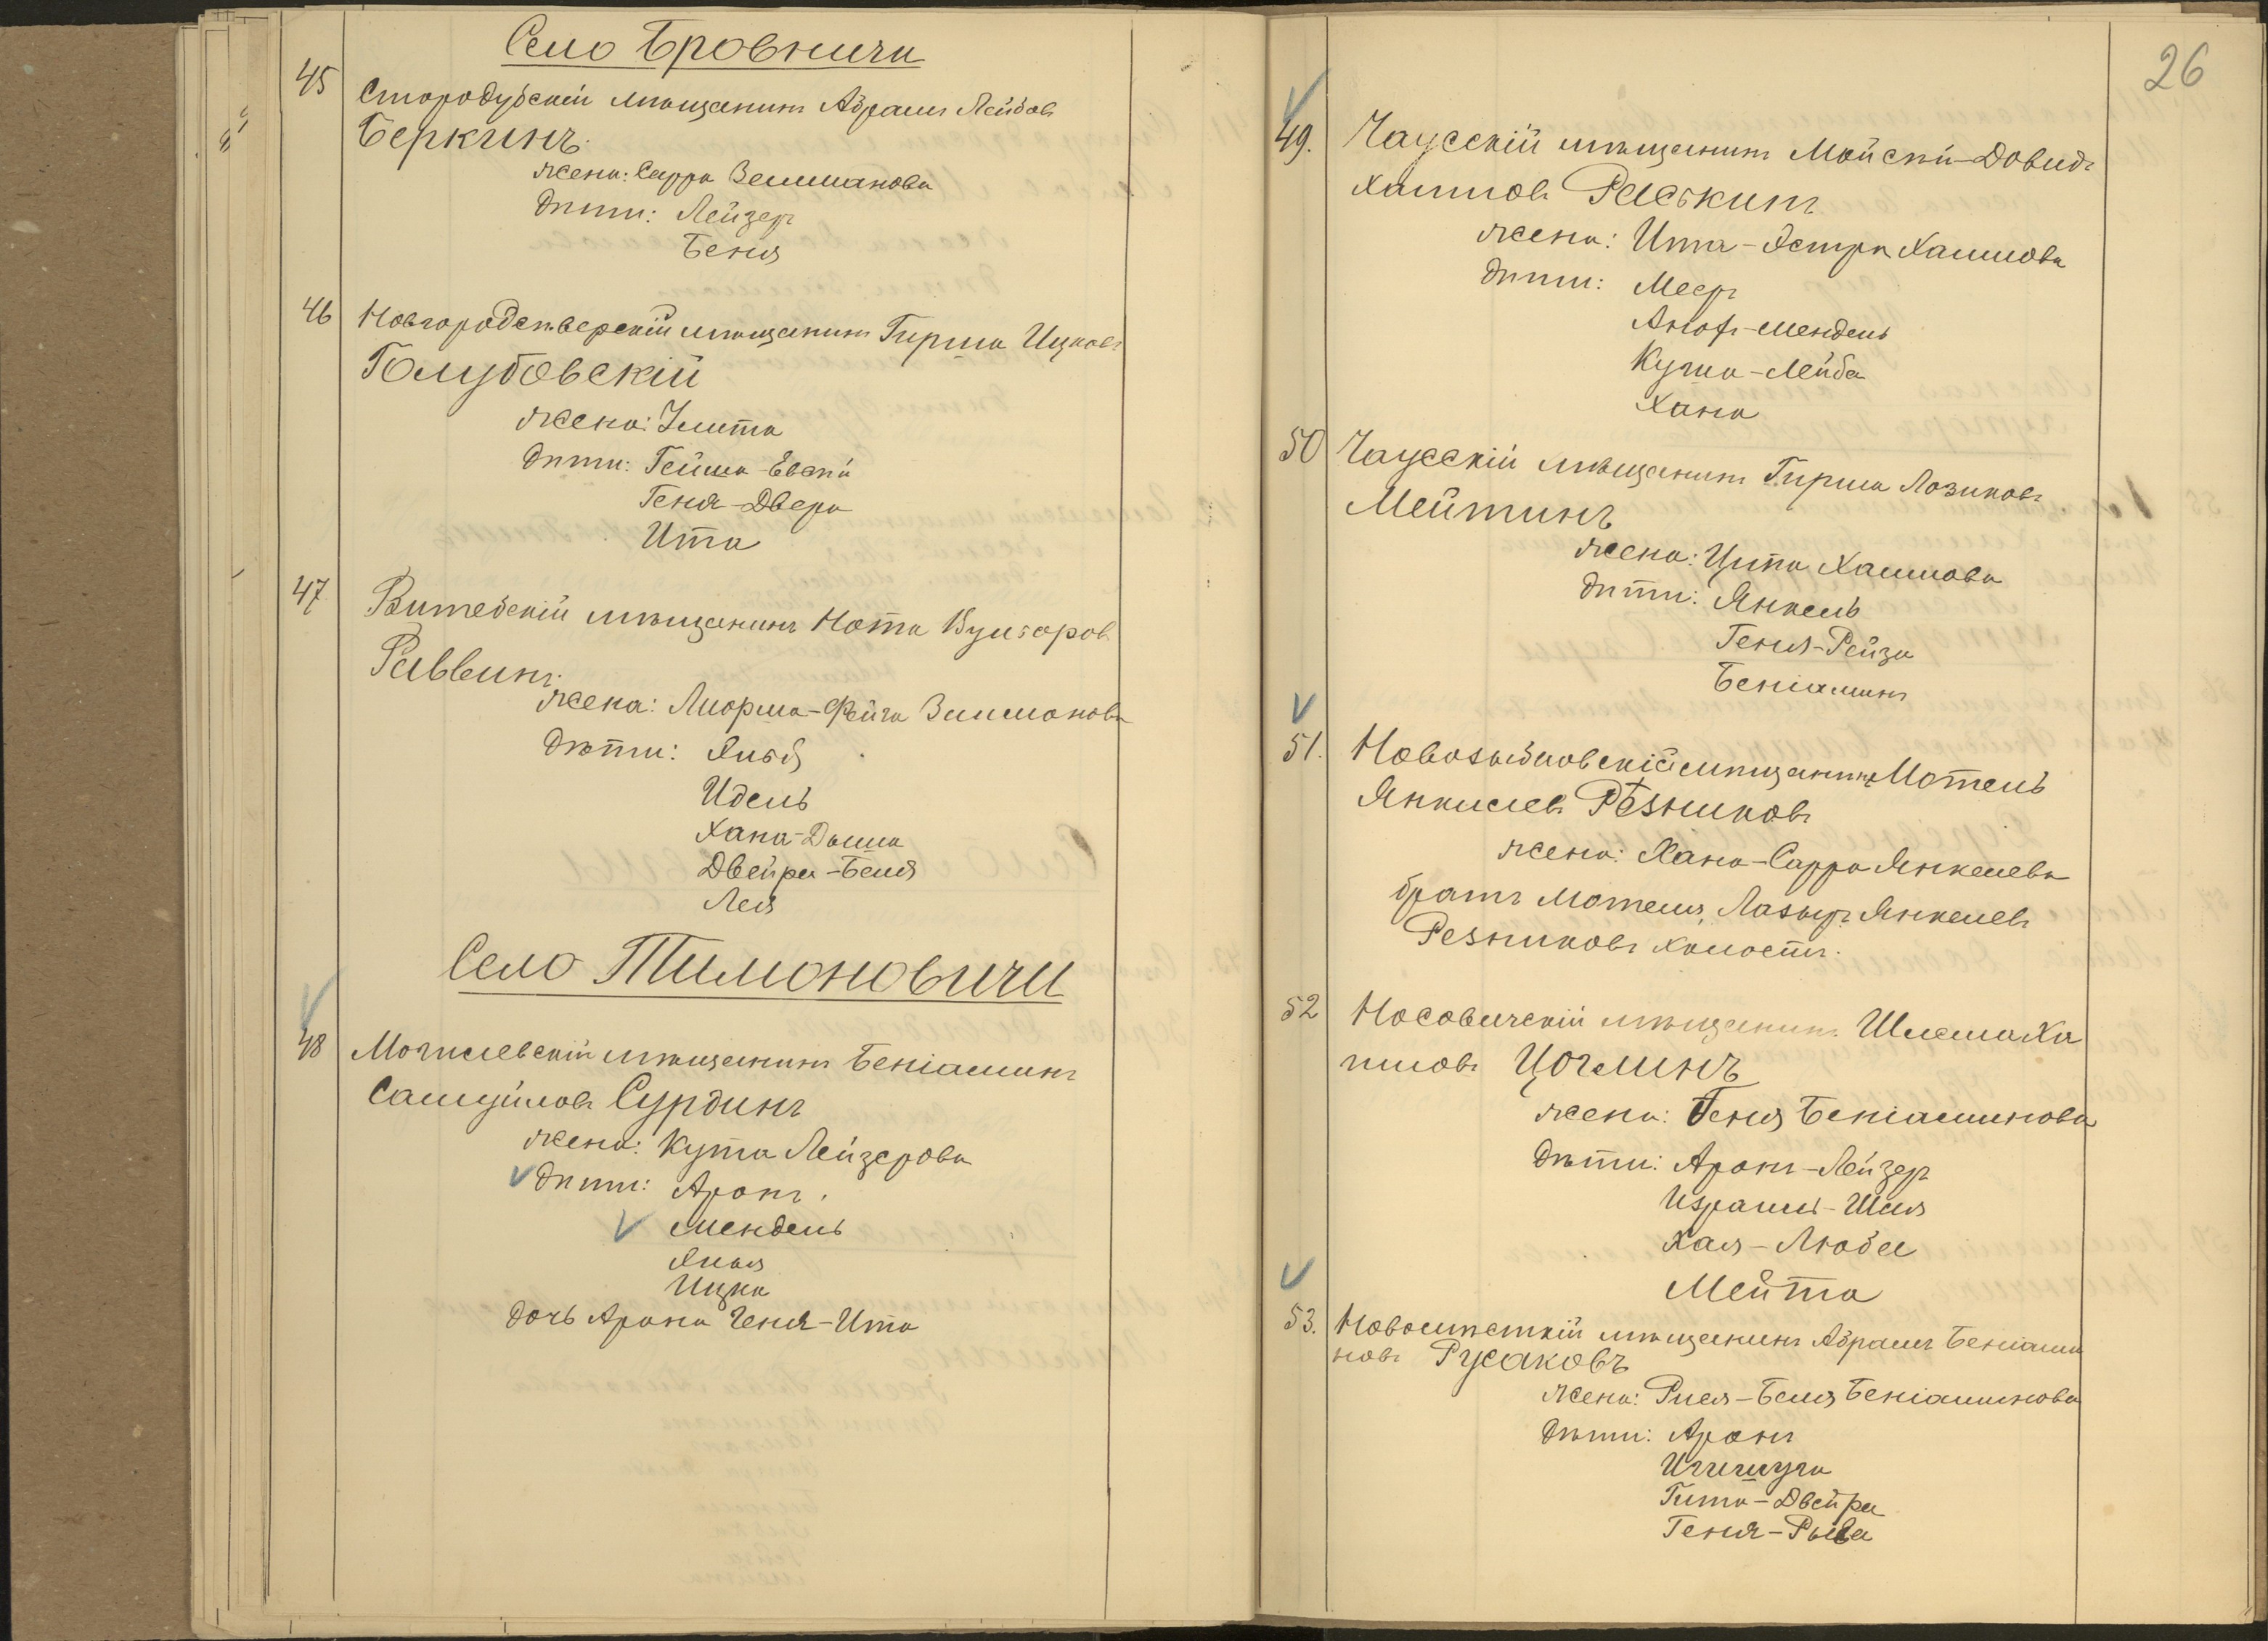 Село Бровничи
45 Стародубскій мѣщанинъ Абрамъ Лейбовъ
Беркинъ.
жена: Сарра Зелмманова
дѣти: Лейзеръ
Беня
46 Новгородсѣверскій мѣщанинъ Гирша Ицковъ
Голубовскій
жена: Злита
дѣти: Гейша-Евсѣй
Геня-Двера
Ита
47 Витебскій мѣщанинъ Нота
Раввинъ.
жена: Фейга Зимманова
дѣти:
Идель
Хана-Дыша
Двейра-Беля
Лея
Село Тимоновичи
48 Могилевскій мѣщанинъ Беніаминъ
Самуйловъ Сурдинъ
жена: Кута Лейзерова
дѣти: Аронъ.
Мендель
Ицка
дочь Арона Геня-Ита
26
49. Чаусскій мѣщанинъ Мойсѣй-Довидъ
Хаимовъ Раськинъ
жена: Ита-Эстра Хаимова
дѣти: Мееръ
Аноф-Мендель
Кушa-Лейба
Хана
50 Чаусскій мѣщанинъ Гирша Лазиковъ
Мейтинъ
жена: Цита Хаимова
дѣти: Янкель
Геня-Рейза
Беніаминъ
51. Новозыбковскій мѣщанинъ Мотель
Янкилевъ Рѣзниковъ
жена: Хана-Сарра Янкелева
братъ Мотеля, Лазырь Янкелевъ
Резниковъ холостъ.
52 Носовичскій мѣщанин. Шлема Ха
имовъ Цоглинъ
жена: Геня Беніаминова
дѣти: Аронъ-Лейзеръ
Израиль-Шая
Хая-Люба
Мейта
53. Новомѣсткій мѣщанинъ Абрамъ Беніами
новъ Русаковъ
жена: Беля Беніаминова
дѣти: Аронъ
Гита-Двейра
Геня-Рыва